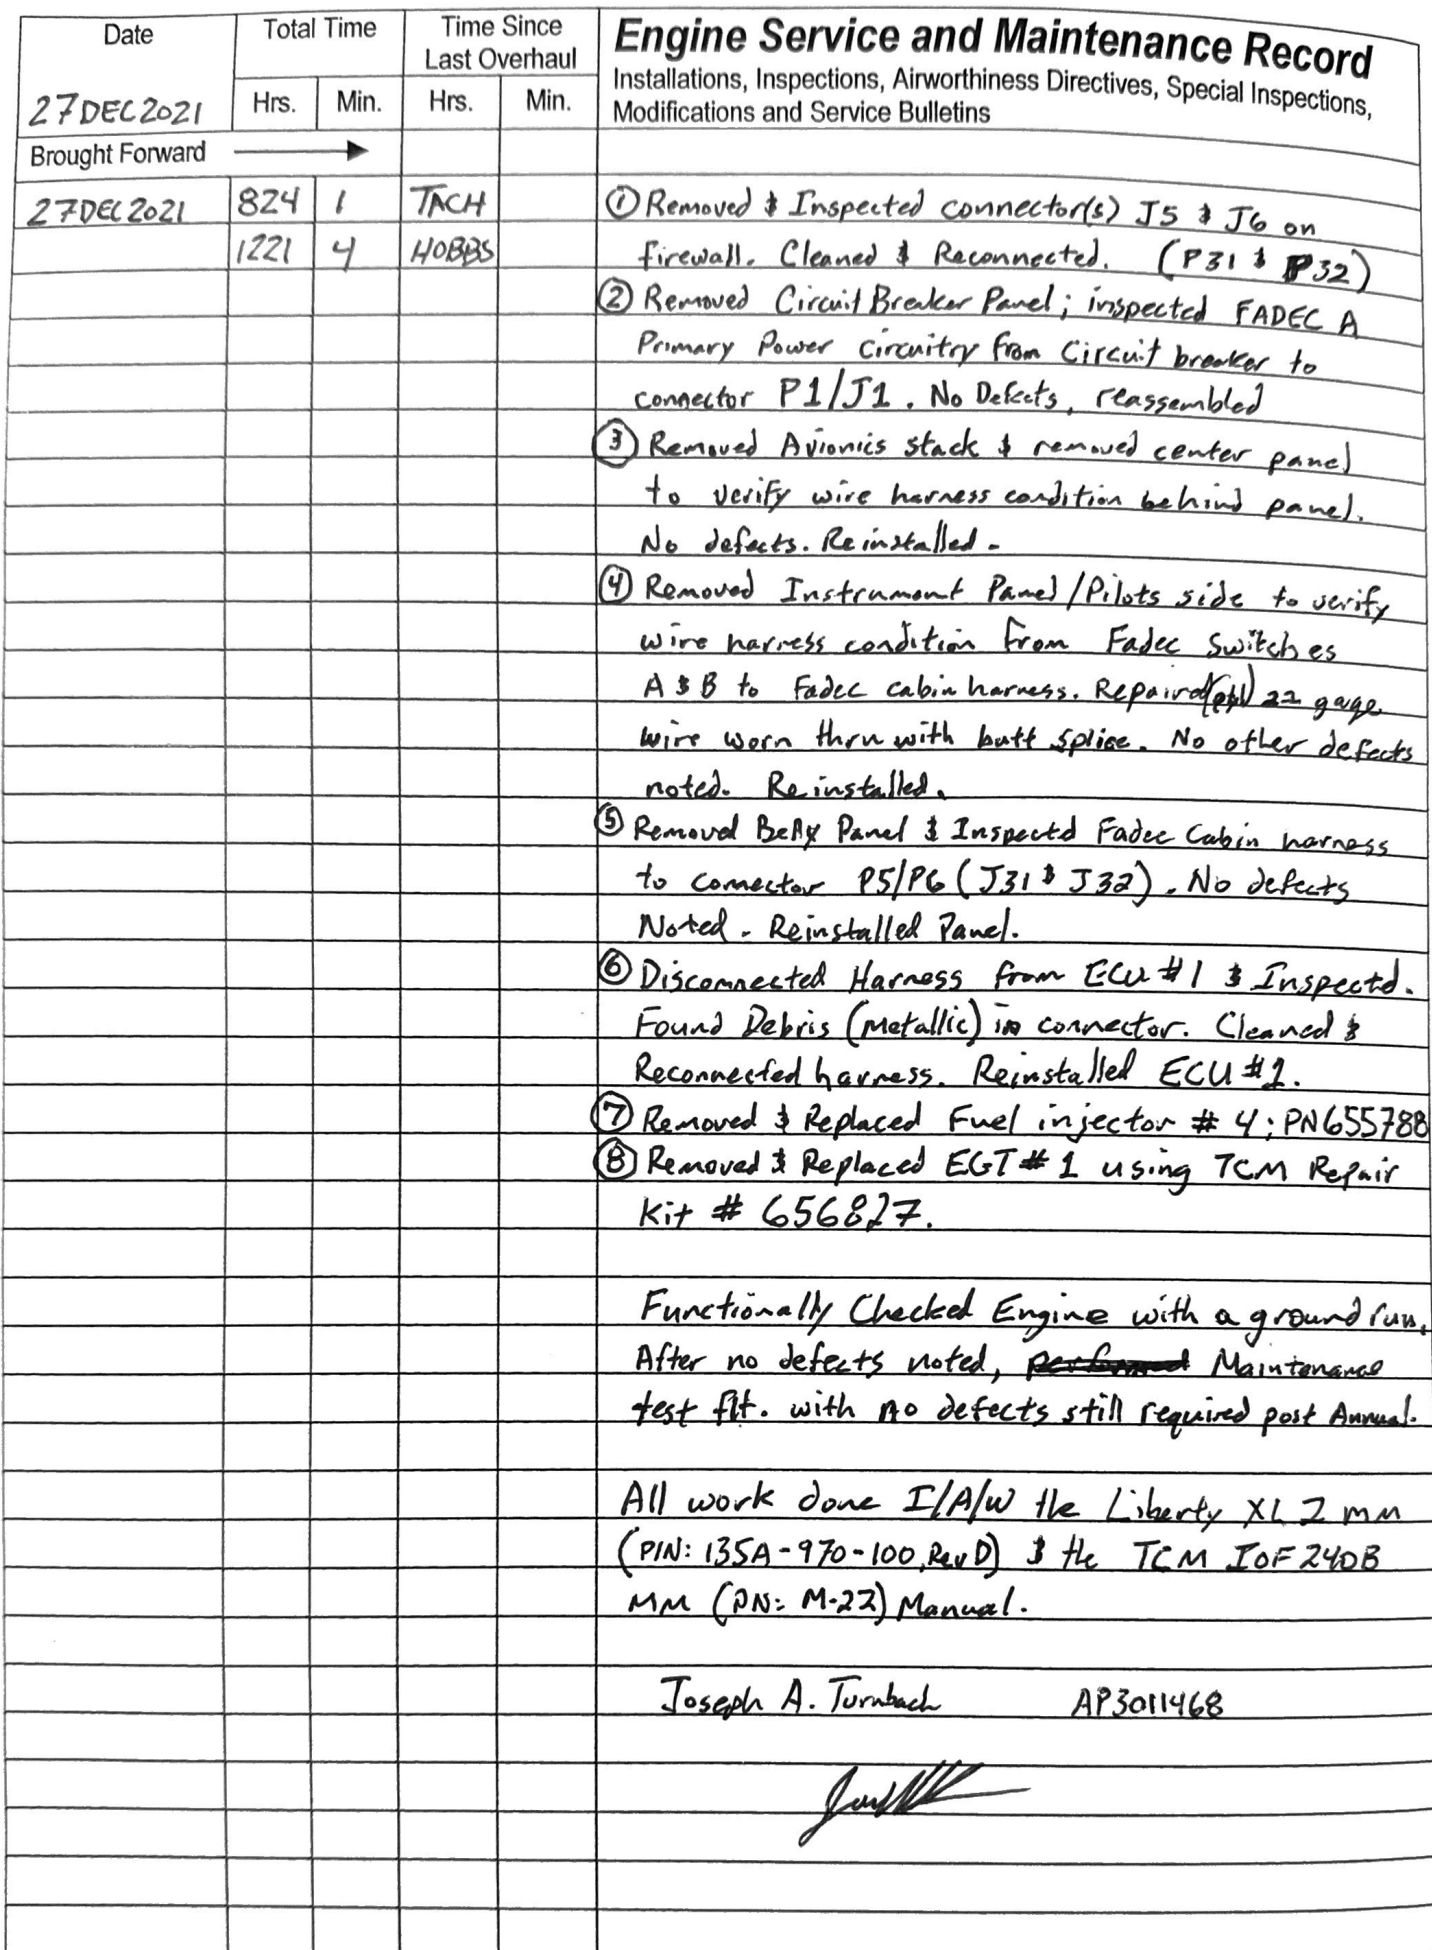 Date
Total Time
Time Since
Last Overhaul
Engine Service and Maintenance Record
Installations, Inspections, Airworthiness Directives, Special Inspections,
Modifications and Service Bulletins
27DEC2021
Hrs.
Min.
Hrs.
Min.
Brought Forward
27DEC2021 824 1 TACH ① Removed & Inspected connector(s) J5 & J6 on
1221 4 HOBBS firewall. Cleaned & Reconnected. (P31 & P32)
② Removed Circuit Breaker Panel; inspected FADEC A
Primary Power Circuitry from Circuit breaker to
connector P1/J1. No Defects, reassembled
③ Removed Avionics stack & removed center panel
to verify wire harness condition behind panel.
No defects. Reinstalled.
④ Removed Instrument Panel/Pilots side to verify
wire harness condition from Fadec Switches
A & B to Fadec cabin harness. Repaired 22 gage
wire worn thru with butt splice. No other defects
noted. Reinstalled.
⑤ Removed Belly Panel & Inspectd Fadec Cabin harness
to connector P5/P6 (J31 & J32). No defects
Noted. Reinstalled Panel.
⑥ Disconnected Harness from ECU #1 & Inspectd.
Found Debris (Metallic) in connector. Cleaned &
Reconnected harness. Reinstalled ECU #1.
⑦ Removed & Replaced Fuel injector # 4; PN655788
⑧ Removed & Replaced EGT # 1 using TCM Repair
Kit # 656827.
Functionally Checked Engine with a ground run.
After no defects noted, performed Maintenance
test flt. with no defects still required post Annual.
All work done I/A/W the Liberty XL2 MM
(P/N: 135A-970-100, Rev D) & the TCM IOF240B
MM (PN: M-22) Manual.
Joseph A. Turnbach AP3011468